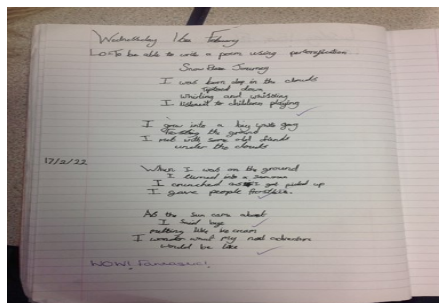 Wednesday 16th February
LO-To be able to write a poem using personification
Snow Journey
I was born deep in the clouds
down
whirling and whistling
I listent to childrens playing
I grow into a big white
the ground
I met with some old friends
under the clouds
17/2/22
When I was on the ground
I turned into a
I crunched as I got picked up
I gave people
As the sun came
I said bye
melting like ice cream
I wonder what my next
would be like
WOW! Fantastic!